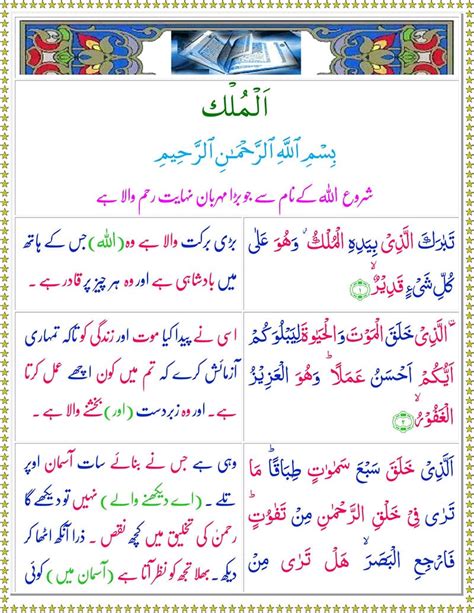 اَلْمُلْك
بِسْمِ اللّٰهِ الرَّحْمٰنِ الرَّحِيْمِ
شروع اللہ کے نام سے جو بڑا مہربان نہایت رحم والا ہے
تَبٰرَكَ الَّذِىْ بِيَدِهِ الْمُلْكُ ۖ وَهُوَ عَلٰى
كُلِّ شَىْءٍ قَدِيْرٌ ۙ ﴿١﴾
بڑی برکت والا ہے وہ (اللہ) جس کے ہاتھ
میں بادشاہی ہے اور وہ ہر چیز پر قادر ہے ۔
اۨلَّذِىْ خَلَقَ الْمَوْتَ وَالْحَيٰوةَ لِيَبْلُوَكُمْ
اَيُّكُمْ اَحْسَنُ عَمَلًا ؕ وَهُوَ الْعَزِيْزُ
الْغَفُوْرُ ۙ ﴿٢﴾
اسی نے پیدا کیا موت اور زندگی کو تاکہ تمہاری
آزمائش کرے کہ تم میں کون اچھے عمل کرتا
ہے ۔ اور وہ زبردست (اور) بخشنے والا ہے ۔
الَّذِىْ خَلَقَ سَبْعَ سَمٰوٰتٍ طِبَاقًا ؕ مَا
تَرٰى فِىْ خَلْقِ الرَّحْمٰنِ مِنْ تَفٰوُتٍ ؕ
فَارْجِعِ الْبَصَرَ ۙ هَلْ تَرٰى مِنْ
وہی ہے جس نے بنائے سات آسمان اوپر
تلے ۔ (اے دیکھنے والے) نہیں تو دیکھے گا
رحمٰن کی تخلیق میں کچھ نقص ۔ ذرا آنکھ اٹھا کر
دیکھ ۔ بھلا تجھ کو نظر آتا ہے (آسمان میں) کوئی